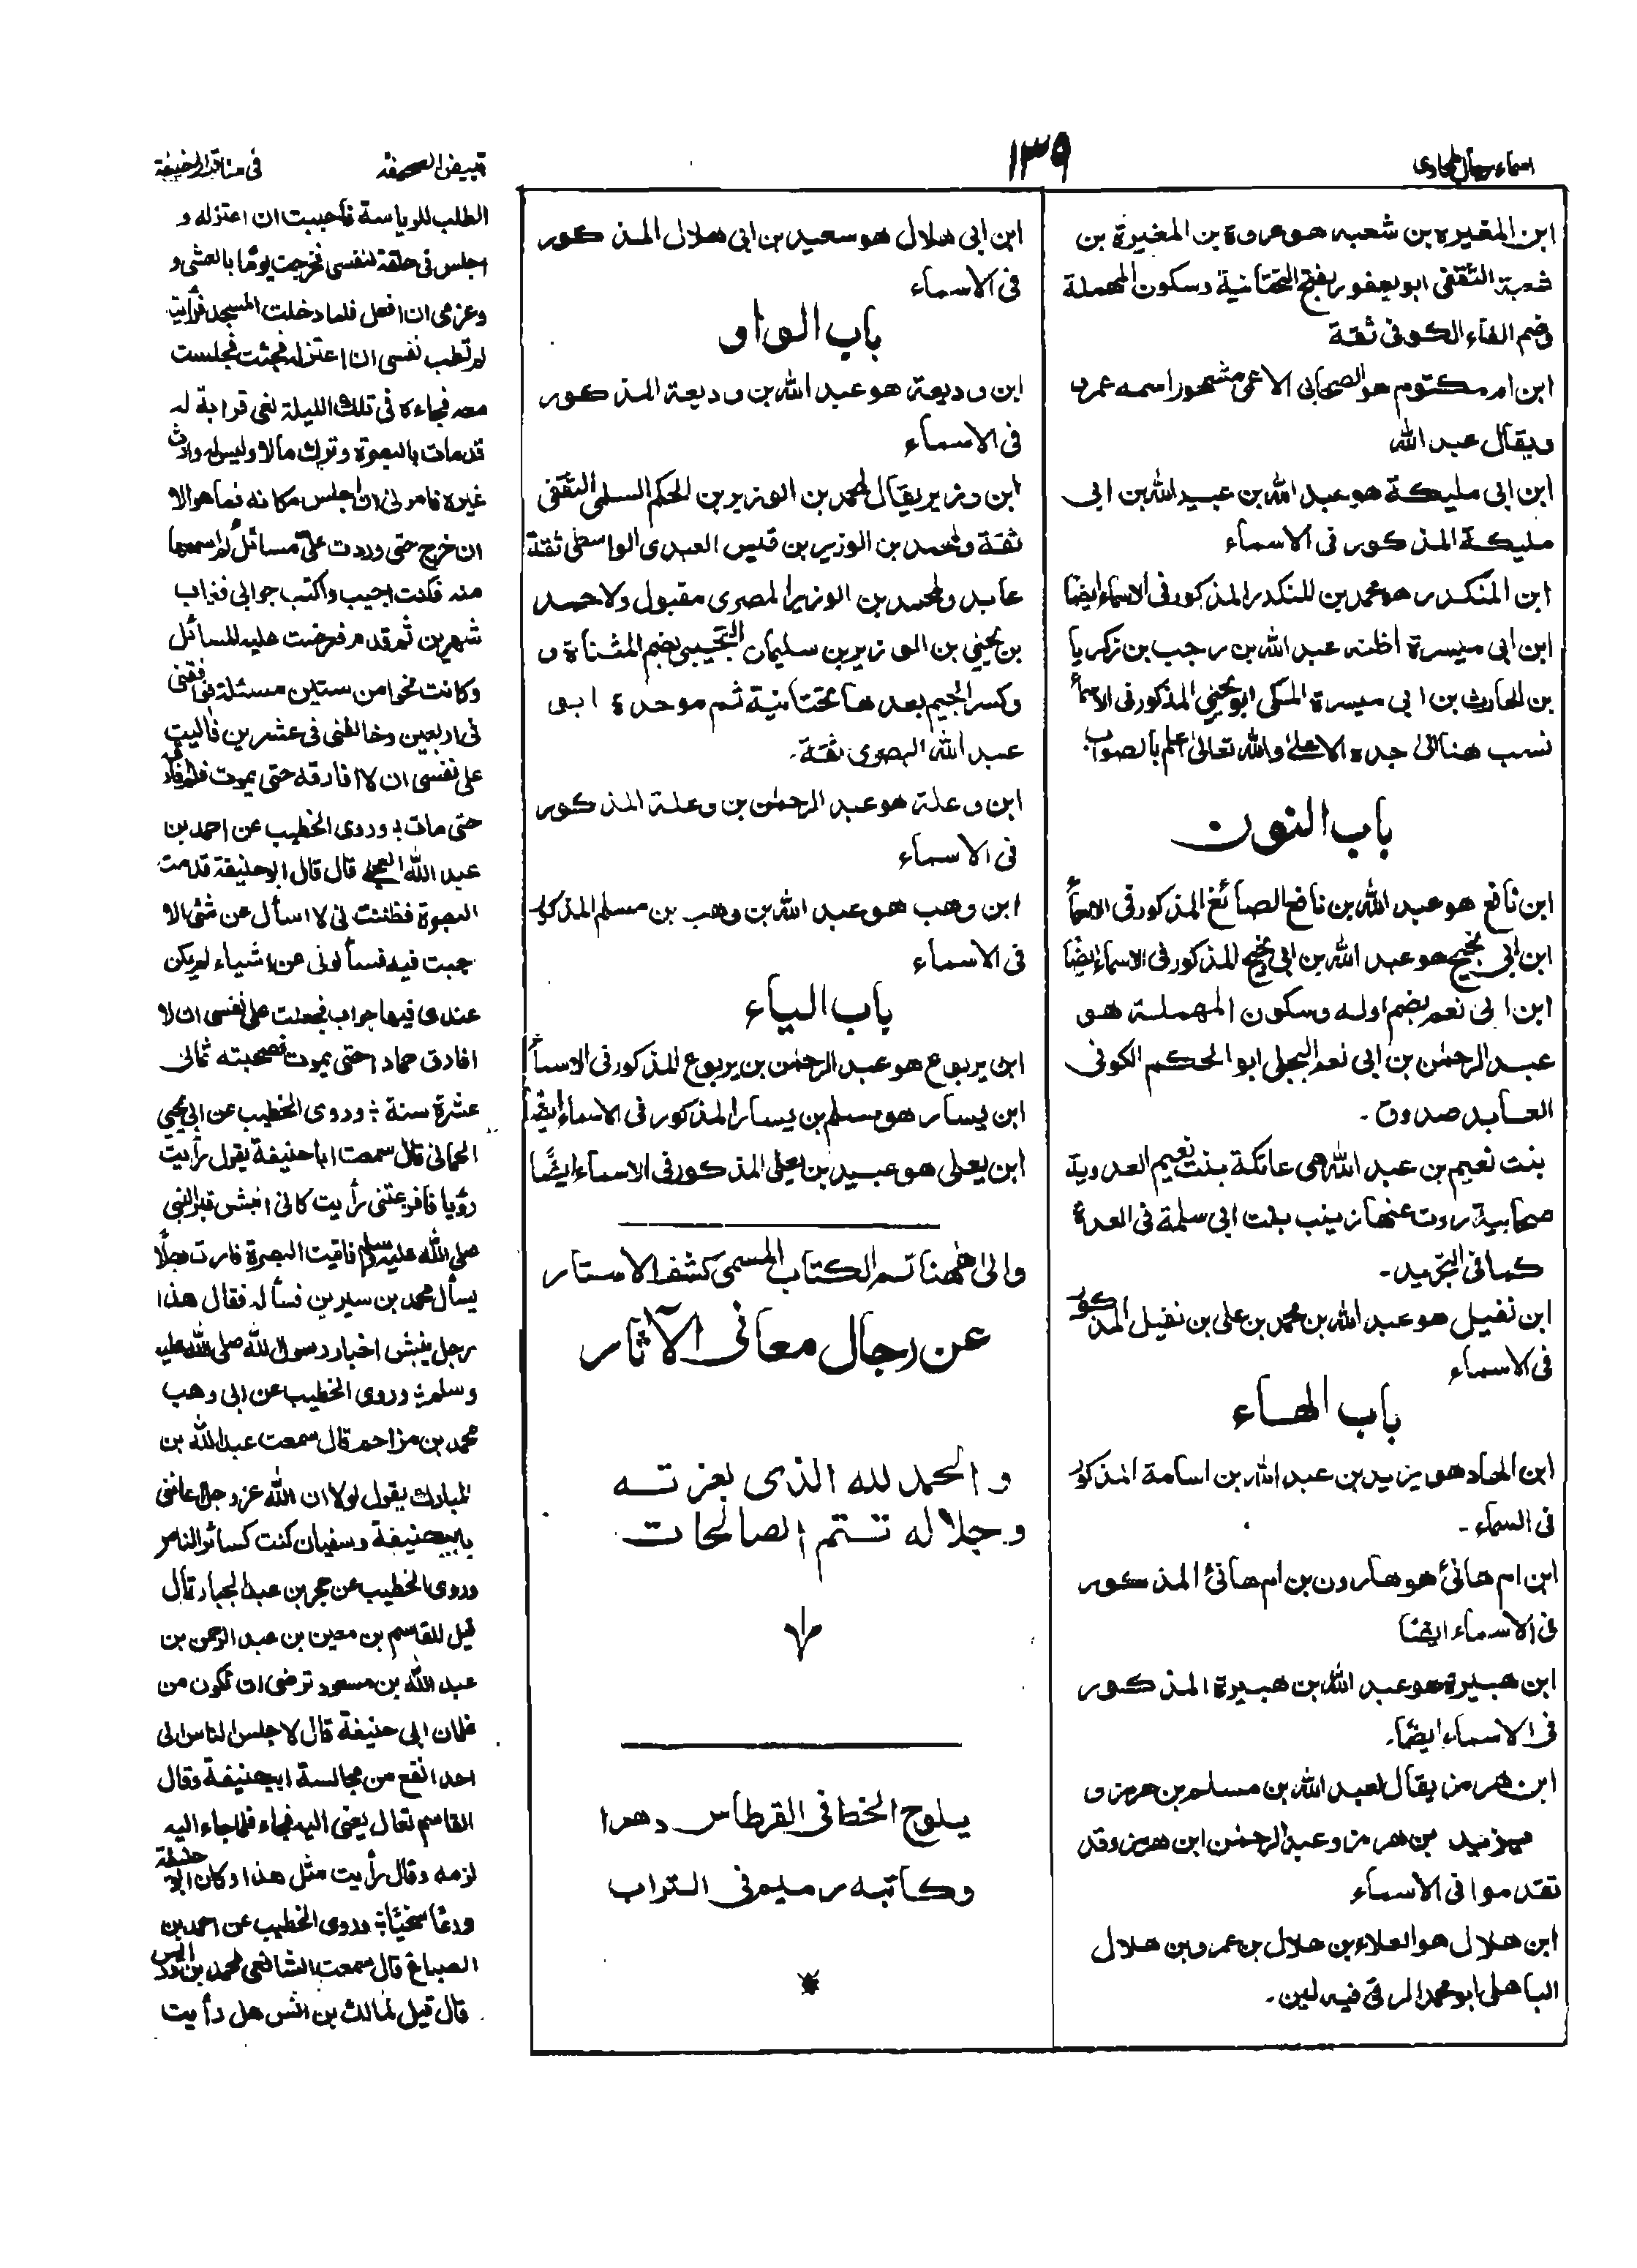 اسماء رجال طحاوی
١٣٩
تبييض الصحيفة
فى مناقب ابى حنيفة
ابن المغيرة بن شعبه هو عروة بن المغيرة بن
شعبة الثقفى ابو يعفور بفتح التحتانية وسكون المهملة
وضم الفاء الكوفى ثقة
ابن ام مكتوم هو الصحابى الاعمى مشهور اسمه عمرو
ويقال عبد الله
ابن ابى مليكة هو عبد الله بن عبيد الله بن ابى
مليكة المذكور فى الاسماء
ابن المنكدر هو محمد بن المنكدر المذكور فى الاسماء ايضا
ابن ابى ميسرة اظنه عبد الله بن رجب بن زكريا
بن الحارث بن ابى ميسرة المكى ابو يحيى المذكور فى الاسمأ
نسب هنا الى جده الاعلىٰ والله تعالىٰ اعلم بالصواب
باب النون
ابن نافع هو عبد الله بن نافع الصائغ المذكور فى الاسمأ
ابن ابى نجيح هو عبد الله بن ابى نجيح المذكور فى الاسماء ايضا
ابن ابى نعم بضم اوله وسكون المهملة هو
عبد الرحمٰن بن ابى نعم البجلى ابو الحكم الكوفى
العابد صدوق۔
بنت نعيم بن عبد الله هى عاتكة بنت نعيم العدوية
صحابية روت عنها زينب بنت ابى سلمة فى العدة
كما فى التجريد۔
ابن نفيل هو عبد الله بن محمد بن على بن نفيل المذكور
فى الاسماء
باب الهاء
ابن الهاد هو يزيد بن عبد الله بن اسامة المذكور
فى السماء۔
ابن ام هانئ هو هارون بن ام هانئ المذكور
فى الاسماء ايضا
ابن هبيرة هو عبد الله بن هبيرة المذكور
فى الاسماء ايضًا۔
ابن هرمز يقال لعبد الله بن مسلم بن هرمز و
يزيد بن هرمز وعبد الرحمٰن ابن هرمز وقد
تقدموا فى الاسمأء
ابن هلال هو العلاء بن هلال بن عمرو بن هلال
الباهلى ابو محمد الرقى فيه لين۔
ابن ابى هلال هو سعيد بن ابى هلال المذكور
فى الاسماء
باب الواو
ابن وديعة هو عبد الله بن وديعة المذكور
فى الاسمأء
ابن وزير يقال لمحمد بن الوزير بن الحكم السلمى الثقفى
ثقة ومحمد بن الوزير بن قيس العبدى الواسطى ثقة
عابد ولمحمد بن الوزير المصرى مقبول ولاحمد
بن يحيىٰ بن الوزير بن سليمان التجيبى بضم المثناة و
وكسر الجيم بعدها تحتانية ثم موحدة ابى
عبد الله المصرى ثقة۔
ابن وعلة هو عبد الرحمٰن بن وعلة المذكور
فى الاسماء
ابن وهب هو عبد الله بن وهب بن مسلم المذكور
فى الاسماء
باب الياء
ابن يربوع هو عبد الرحمٰن بن يربوع المذكور فى الاسمأ
ابن يسار هو مسلم بن يسار المذكور فى الاسماء ايضًا
ابن يعلى هو عبيد بن يعلى المذكور فى الاسماء ايضًا
والى ههنا تم الكتاب المسمى كشف الاستار
عن رجال معانى الآثار
والحمد لله الذى بعزته
وجلاله تتم الصالحات
يلوح الخط فى القرطاس دهرا
وكاتبه رميم فى التراب
الطلب للرياسة فأحببت ان اعتزله و
اجلس فى حلقة لنفسى فخرجت يومًا بالعشى و
وعزمى ان افعل فلما دخلت المسجد فرأيته
لم تطب نفسى ان اعتزله فجئت فجلست
معه فجاءه فى تلك الليلة نعى قرابة له
قد مات بالبصرة وترك مالا وليس له وارث
غيره فامرنى ان اجلس مكانه فما هو الا
ان خرج حتى وردت علىّ مسائل لم اسمعها
منه فكنت اجيب واكتب جوابى فغاب
شهرين ثم قدم فعرضت عليه المسائل
وكانت نحوا من ستين مسئلة فوافقنى
فى اربعين وخالفنى فى عشرين فاليت
على نفسى ان لا افارقه حتى يموت فلم افارقه
حتى مات ؞ وروى الخطيب عن احمد بن
عبد الله العجلى قال قال ابو حنيفة قدمت
البصرة فظننت انى لا اسأل عن شئ الا
اجبت فيه فسألونى عن اشياء لم يكن
عندى فيها جواب فجعلت على نفسى ان لا
افارق حمادا حتى يموت فصحبته ثمانى
عشرة سنة ؞ وروى الخطيب عن ابى يحيى
الحمانى قال سمعت ابا حنيفة يقول رأيت
رؤيا فافزعتنى رأيت كانى انبش قبر النبى
صلى الله عليه وسلم فاتيت البصرة فامرت رجلًا
يسأل محمد بن سيرين فسأله فقال هذا
رجل ينبش اخبار رسول الله صلى الله عليه
وسلم ؞ وروى الخطيب عن ابى وهب
محمد بن مزاحم قال سمعت عبد الله بن
المبارك يقول لولا ان الله عز وجل اغاثنى
بابيحنيفة وسفيان كنت كسائر الناس
وروى الخطيب عن حجر بن عبد الجبار قال
قيل للقاسم بن معين بن عبد الرحمن بن
عبد الله بن مسعود ترضى ان تكون من
غلمان ابى حنيفة قال لا جلس الناس الى
احد انفع من مجالسة ابيحنيفة وقال
القاسم تعال يعنى اليه فجاء فلما جاء اليه
لزمه وقال رأيت مثل هذا وكان ابو حنيفة
ورعًا سخيًا ؞ وروى الخطيب عن احمد بن
الصباغ قال سمعت الشافعى محمد بن ادريس
قال قيل لمالك بن انس هل رأيت